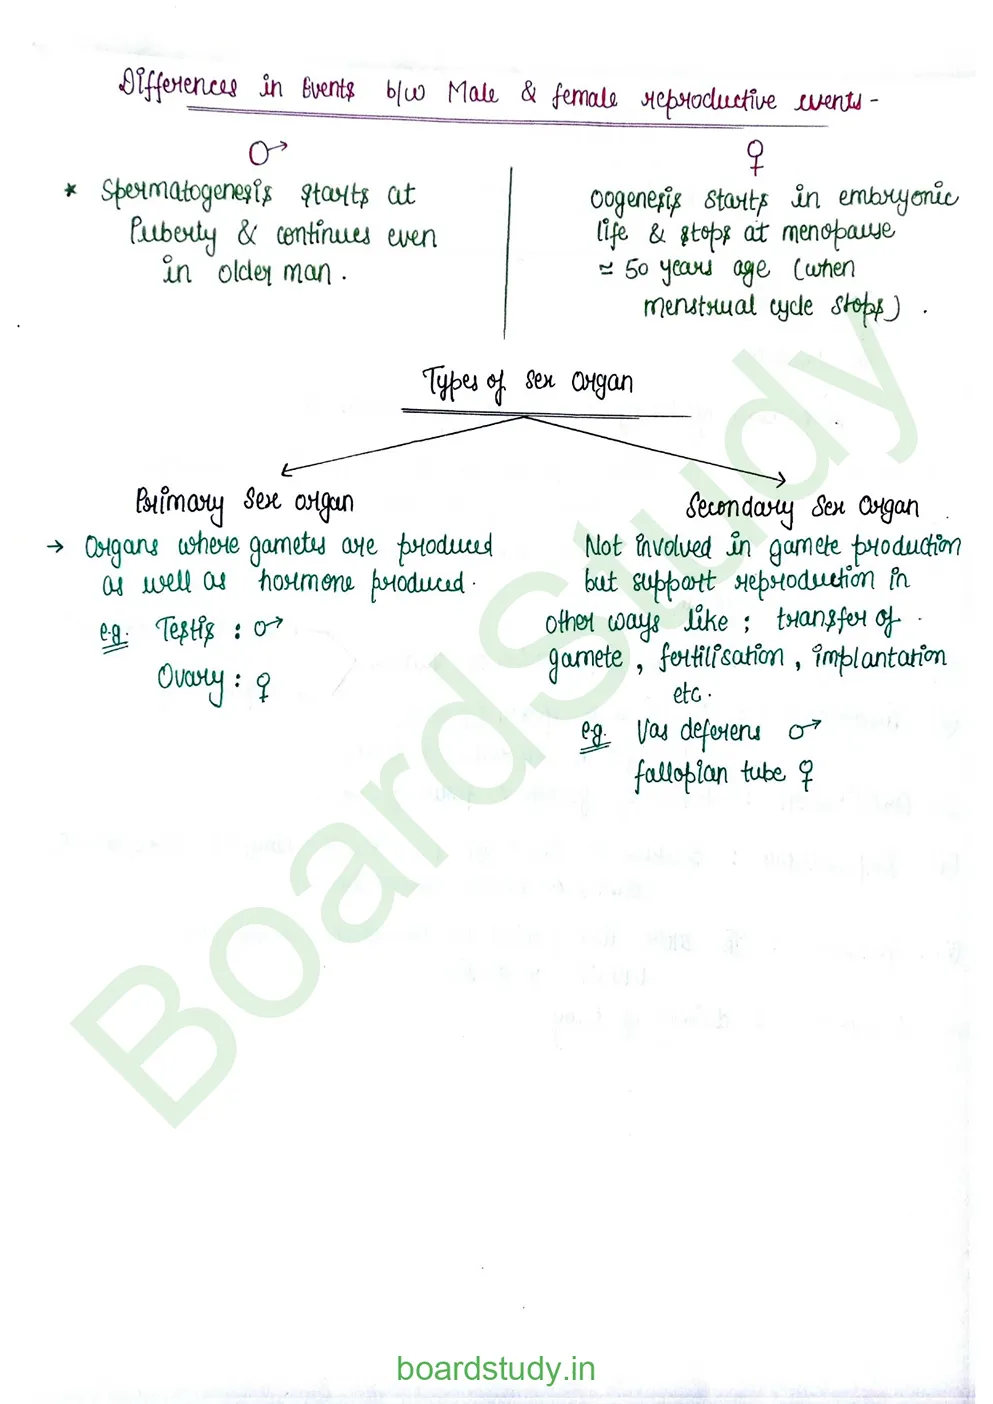 Differences in Events b/w Male & female reproductive events -
♂
* Spermatogenesis starts at
Puberty & continues even
in older man.
♀
oogenesis starts in embryonic
life & stops at menopause
≃ 50 years age (when
menstrual cycle stops).
Types of Sex Organ
Primary Sex organ
→ Organs where gametes are produced
as well as hormone produced.
e.g. Testis : ♂
Ovary : ♀
Secondary Sex Organ
Not involved in gamete production
but support reproduction in
other ways like ; transfer of
gamete, fertilisation, implantation
etc.
e.g. Vas deferens ♂
fallopian tube ♀
BoardStudy
boardstudy.in